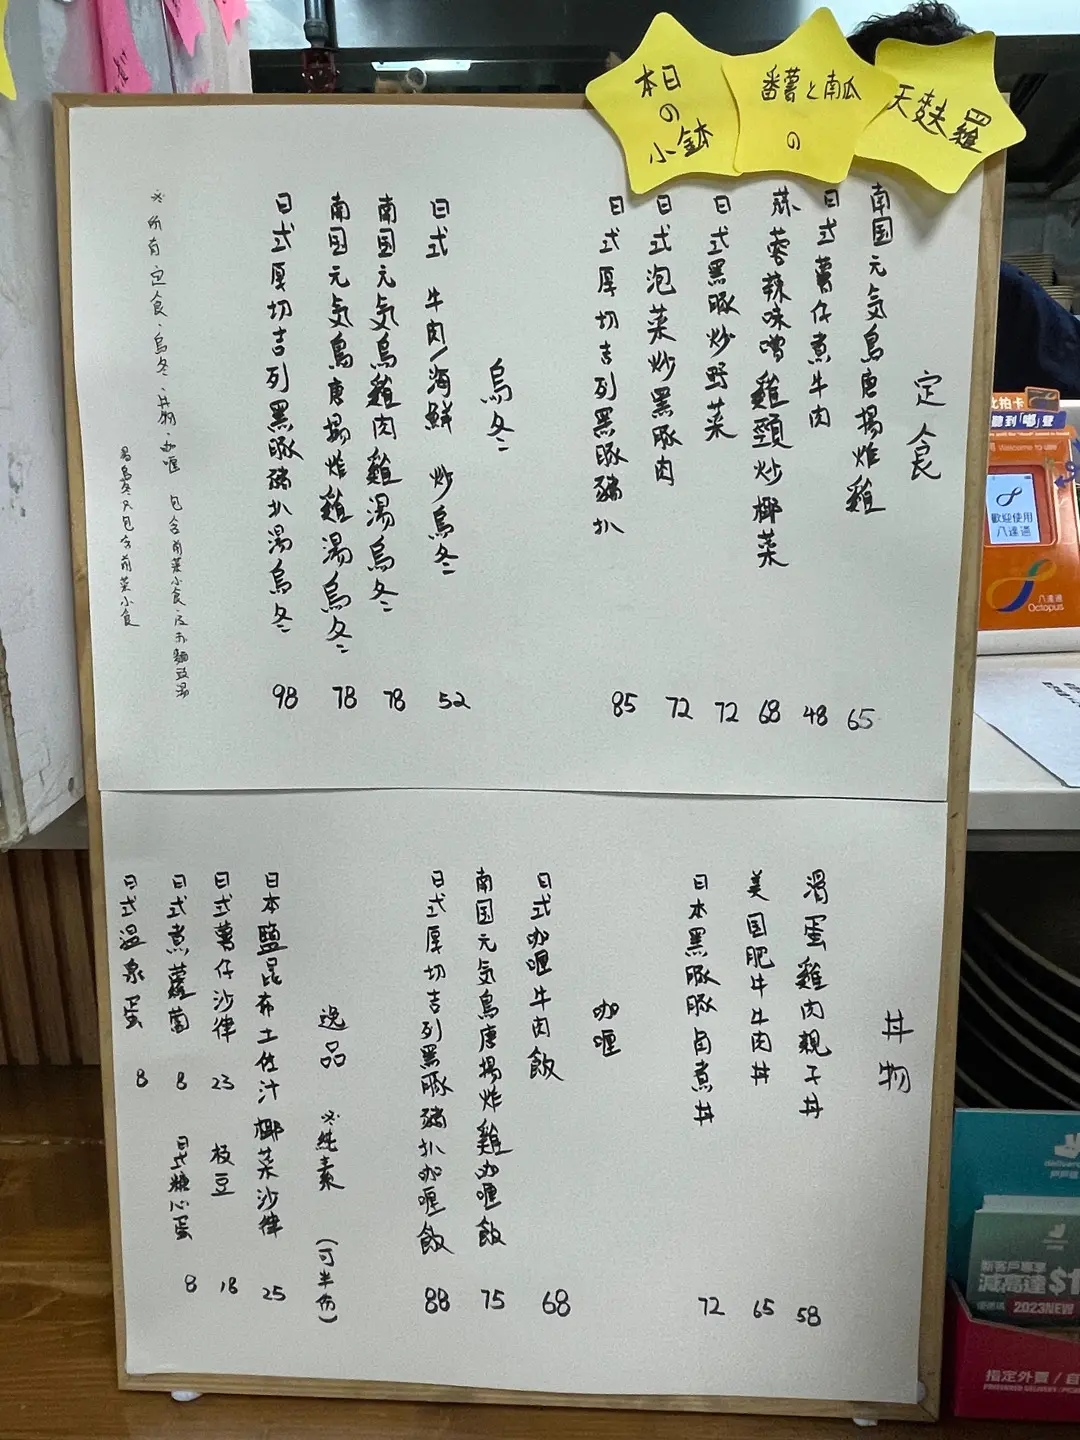 本日
の
小鉢
番薯と南瓜
の
天麩羅
定食
南国元気鳥唐揚炸雞 65
日式薯仔煮牛肉 48
蒜蓉辣味噌雞頸炒椰菜 68
日式黑豚炒野菜 72
日式泡菜炒黑豚肉 72
日式厚切吉列黑豚豬扒 85
烏冬
日式 牛肉/海鮮 炒烏冬 52
南国元気烏雞肉雞湯烏冬 78
南国元気鳥唐揚炸雞湯烏冬 78
日式厚切吉列黑豚豬扒湯烏冬 98
※所有定食·烏冬·丼物·咖喱 包含前菜小食·及
包含前菜小食
丼物
滑蛋雞肉親子丼 58
美国肥牛牛肉丼 65
日本黑豚豚肉煮丼 72
咖喱
日式咖喱牛肉飯 68
南国元気鳥唐揚炸雞咖喱飯 75
日式厚切吉列黑豚豬扒咖喱飯 88
逸品 ※純素 (可半份)
日本鹽昆布士佐汁椰菜沙律 25
日式薯仔沙律 23 枝豆 18
日式煮蘿蔔 8 日式糖心蛋 8
日式温泉蛋 8
拍卡
聽到「嘟」聲
Welcome to use
歡迎使用
八達通
八達通
Octopus
deliveroo
新客戶專享
減高達$1
2023NEW
指定外賣 / 自